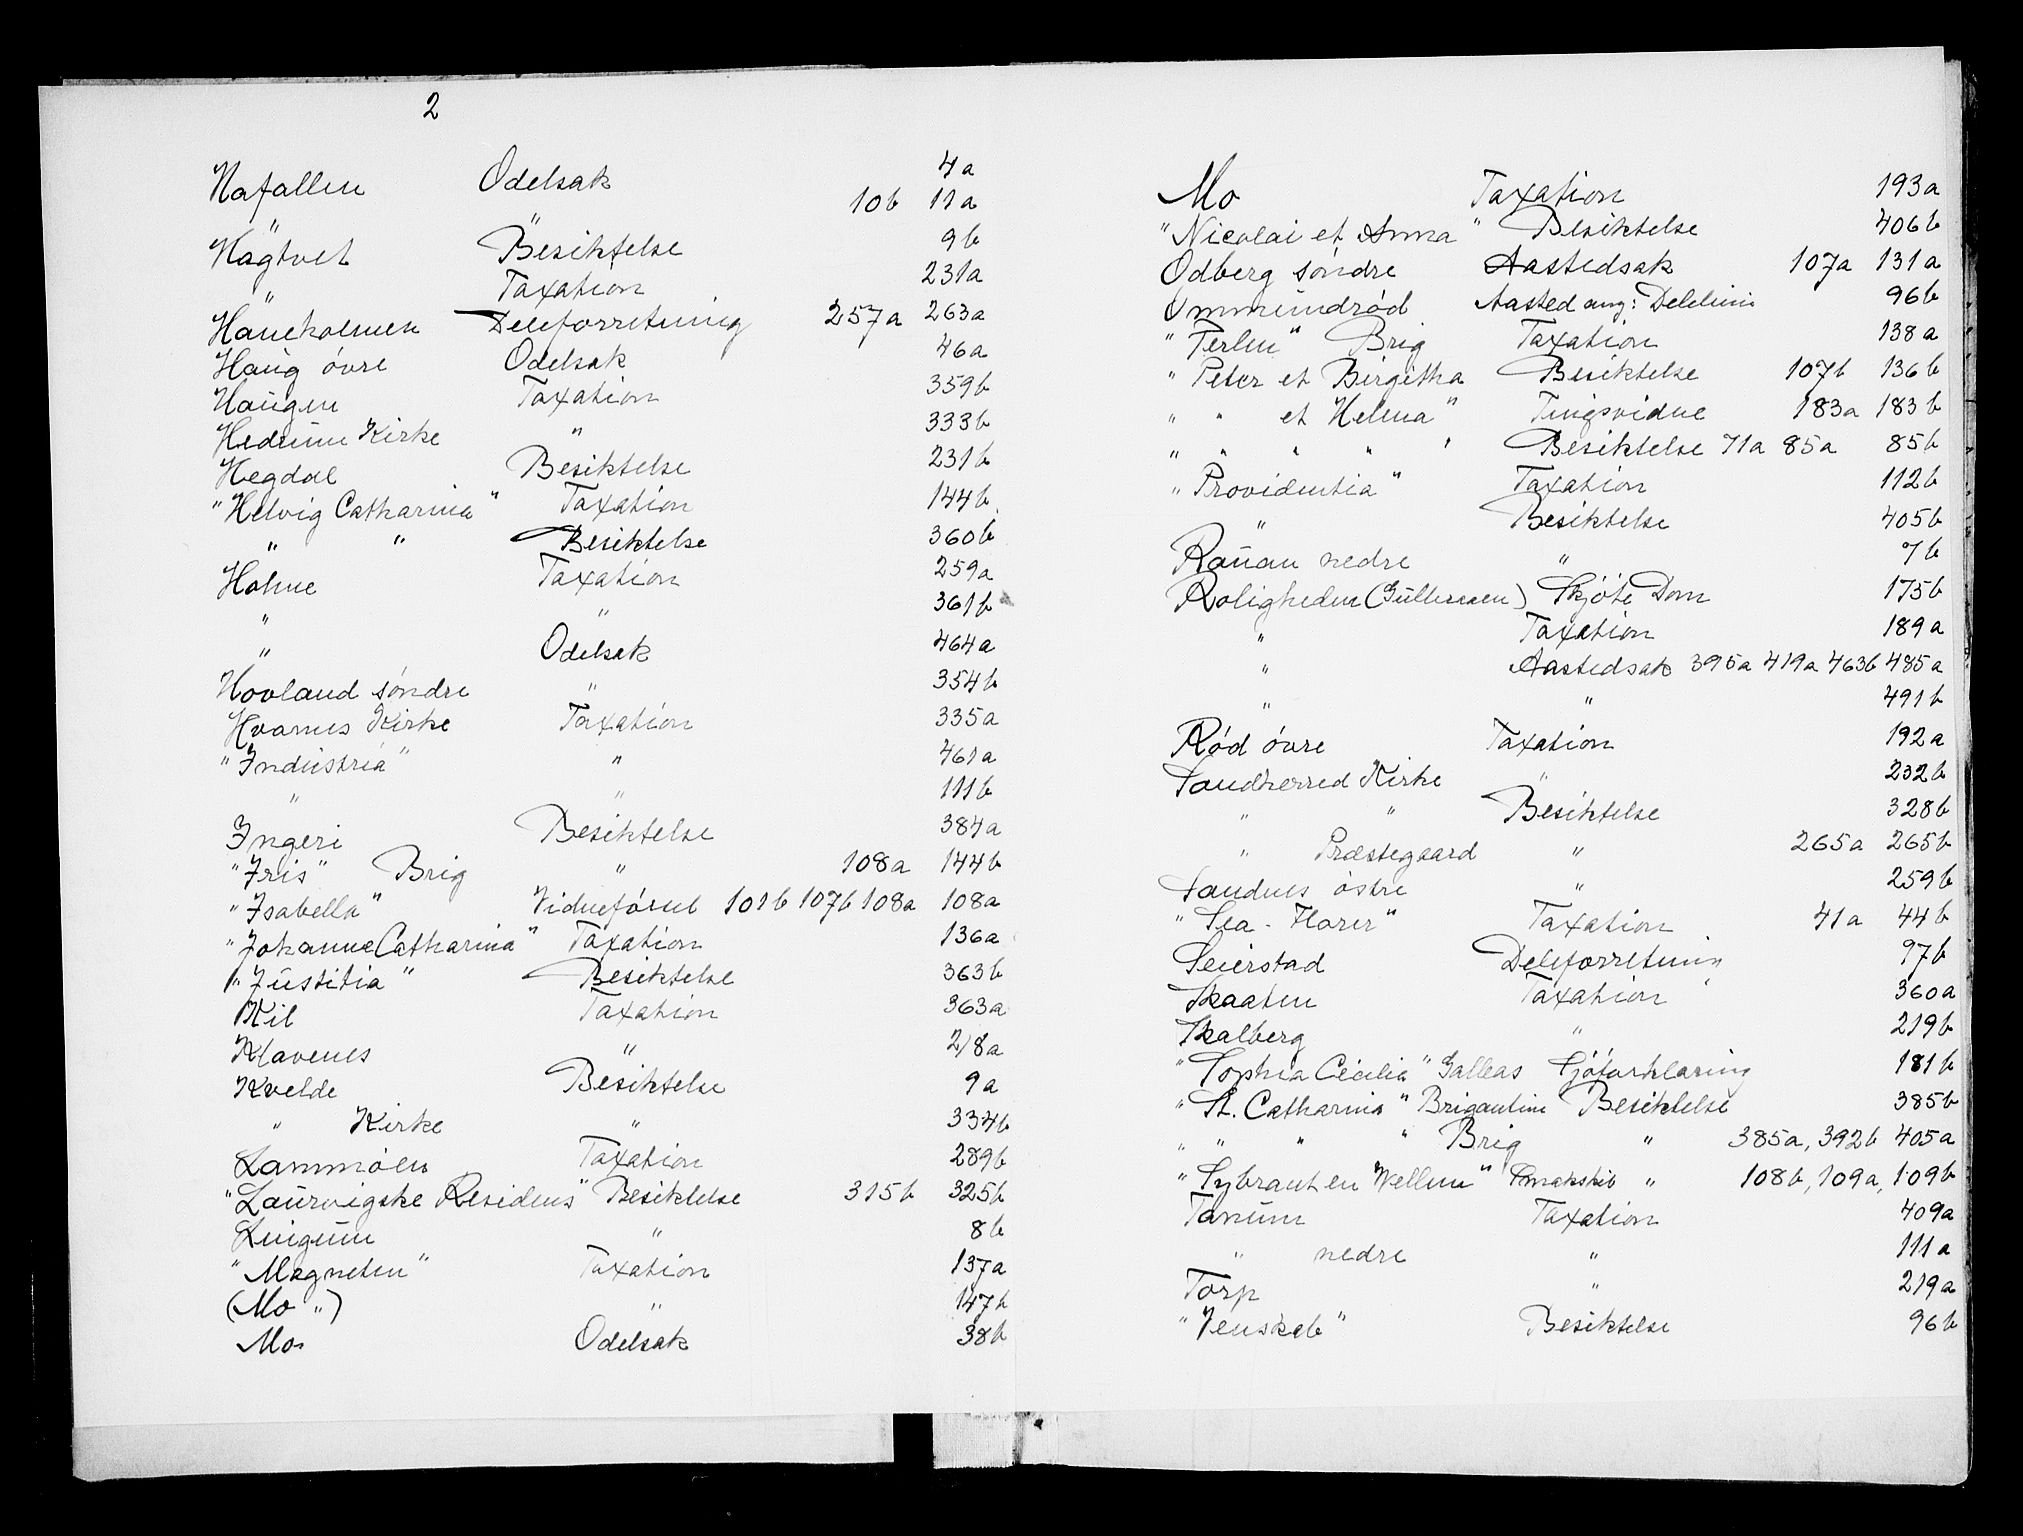 2
Hafallen Odelsak 4a
" " 10b 11a
Hagtvet Besiktelse 9b
" Taxation 231a
Haneholmen Deleforretning 257a 263a
Haug övre Odelsak 46a
Haugen Taxation 359b
Hedrum Kirke " 333b
Hegdal Besiktelse 231b
"Helvig Catharina" Taxation 144b
" " Besiktelse 360b
Holme Taxation 259a
" " 361b
" Odelsak 464a
Hovland söndre " 354b
Hvarnes Kirke Taxation 335a
"Industria" " 461a
" " 111b
Ingeri Besiktelse 384a
"Iris" Brig " 108a 144b
"Isabella" Vidneförsel 101b 107b 108a 108a
"Johanne Catharina" Taxation 136a
"Justitia" Besiktelse 363b
Kil Taxation 363a
Klavenes " 218a
Kvelde Besiktelse 9a
" Kirke " 334b
Lammöen Taxation 289b
"Laurvigske Residens" Besiktelse 315b 325b
Lingum " 8b
"Magneten" Taxation 137a
(Mo ") " 147b
Mo Odelsak 38b
Mo Taxation 193a
"Nicolai et Anna" Besiktelse 406b
Odberg söndre Aastedsak 107a 131a
Ommundröd Aasted ang: Delelinie 96b
"Perlen" Brig Taxation 138a
"Peter et Birgitha Besiktelse 107b 136b
" " et Helena" Tingsvidne 183a 183b
" " " " " Besiktelse 71a 85a 85b
"Providentia" Taxation 112b
" Besiktelse 405b
Rauan nedre " 7b
Roligheden (Gullernaen) Skjöte Dom 175b
" Taxation 189a
" Aastedsak 395a 419a 463b 485a
" " 491b
Röd övre Taxation 192a
Sandherred Kirke " 232b
" " Besiktelse 328b
" Præstegaard " 265a 265b
Sandnes östre " 259b
"Sea-Horse" Taxation 41a 44b
Seierstad Deleforretning 97b
Skaaten Taxation 360a
Skalberg " 219b
"Sophia Cecilia" Galleas Sjöforklaring 181b
"St. Catharina" Brigantine Besiktelse 385b
" " " " Brig " 385a, 392b 405a
"Sybrant en Wellem" Smakskib " 108b, 109a, 109b
Tanum Taxation 409a
" nedre " 111a
Torp " 219a
"Venskab" Besiktelse 96b